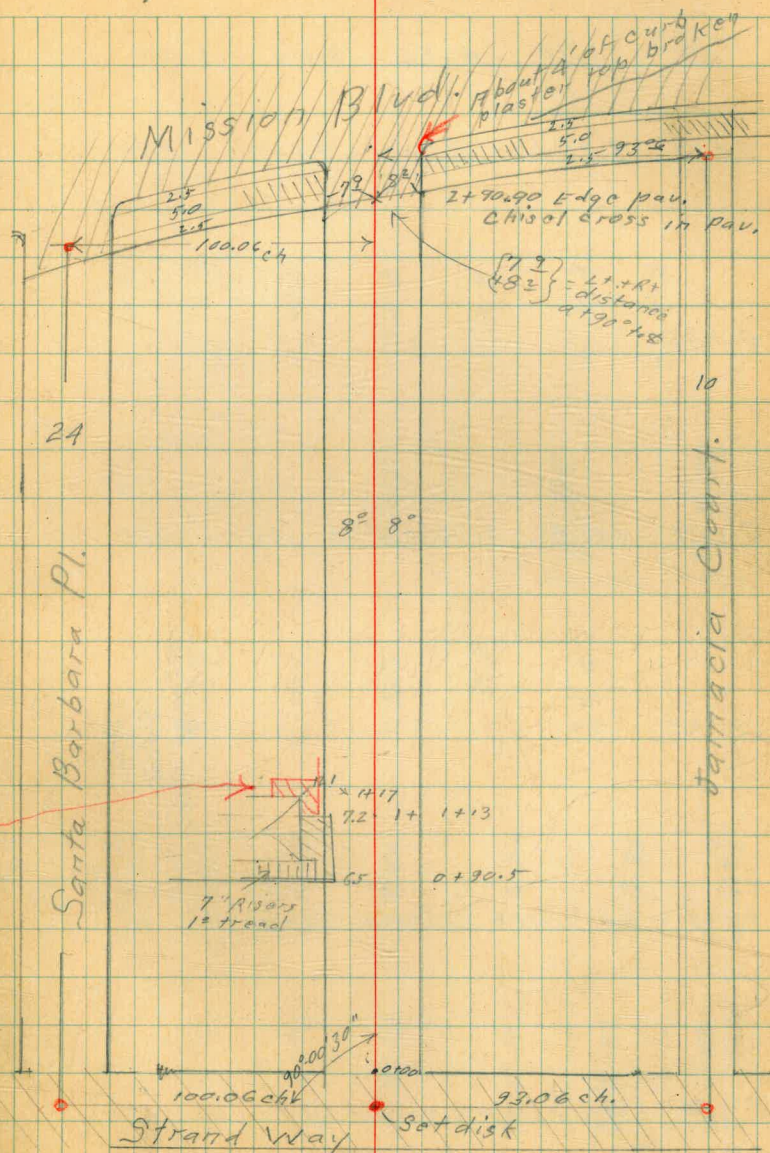 Mission Blvd.
About 4' of curb
plaster top broken
2.5
5.0
2.5
93.06
2.5
5.0
2.5
7 9
8 2
100.06 ch
2+90.90 Edge pav.
Chisel cross in pav.
{7 9
+8 2} = Lt. + Rt
distance
at 90° to
10
24
8° 8°
Santa Barbara Pl.
Jamacia Court.
7.1
x 1+17
7.2 1+ 1+13
6.5 0+90.5
7" Risers
1° tread
90°00'30"
0+00
100.06 ch
93.06 ch.
Set disk
Strand Way